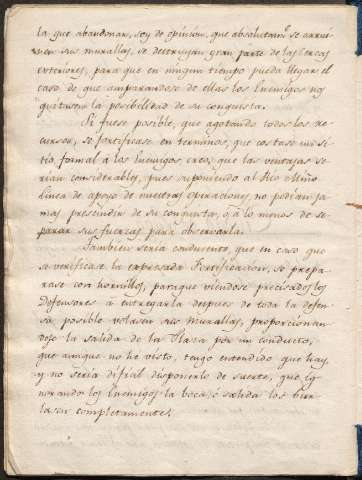 la que abandonar, soy de opinion, que absolutamte se arrui
nen sus murallas, se destruyan gran parte de las cercas
exteriores, para que en ningun tiempo pueda llegar el
caso de que amparandose de ellas los Enemigos no
quitasen la posibilidad de su conquista.
Si fuese posible, que agotando todos los re
cursos, se fortificase en terminos, que costase un si
tio formal á los Enemigos, creo, que las ventajas se
rian considerables, pues suponiendo al Rio Miño
linea de apoyo de nuestras operaciones, no podrian ja
mas prescindir de su conquista, ó á lo menos de se
parar sus fuerzas para observarla.
Tambien seria conducente, que en caso que
se verificase la expresada Fortificacion, se prepa
rase con hornillos, para que viendose precisados los
Defensores á entregarla despues de toda la defen
sa posible volasen sus Murallas, proporcionan
dose la salida de la Plaza por un conducto,
que aunque no he visto, tengo entendido que hay,
y no seria dificil disponerlo de suerte, que ig
norando los Enemigos la boca, ó salida los burla
lasen completamente.